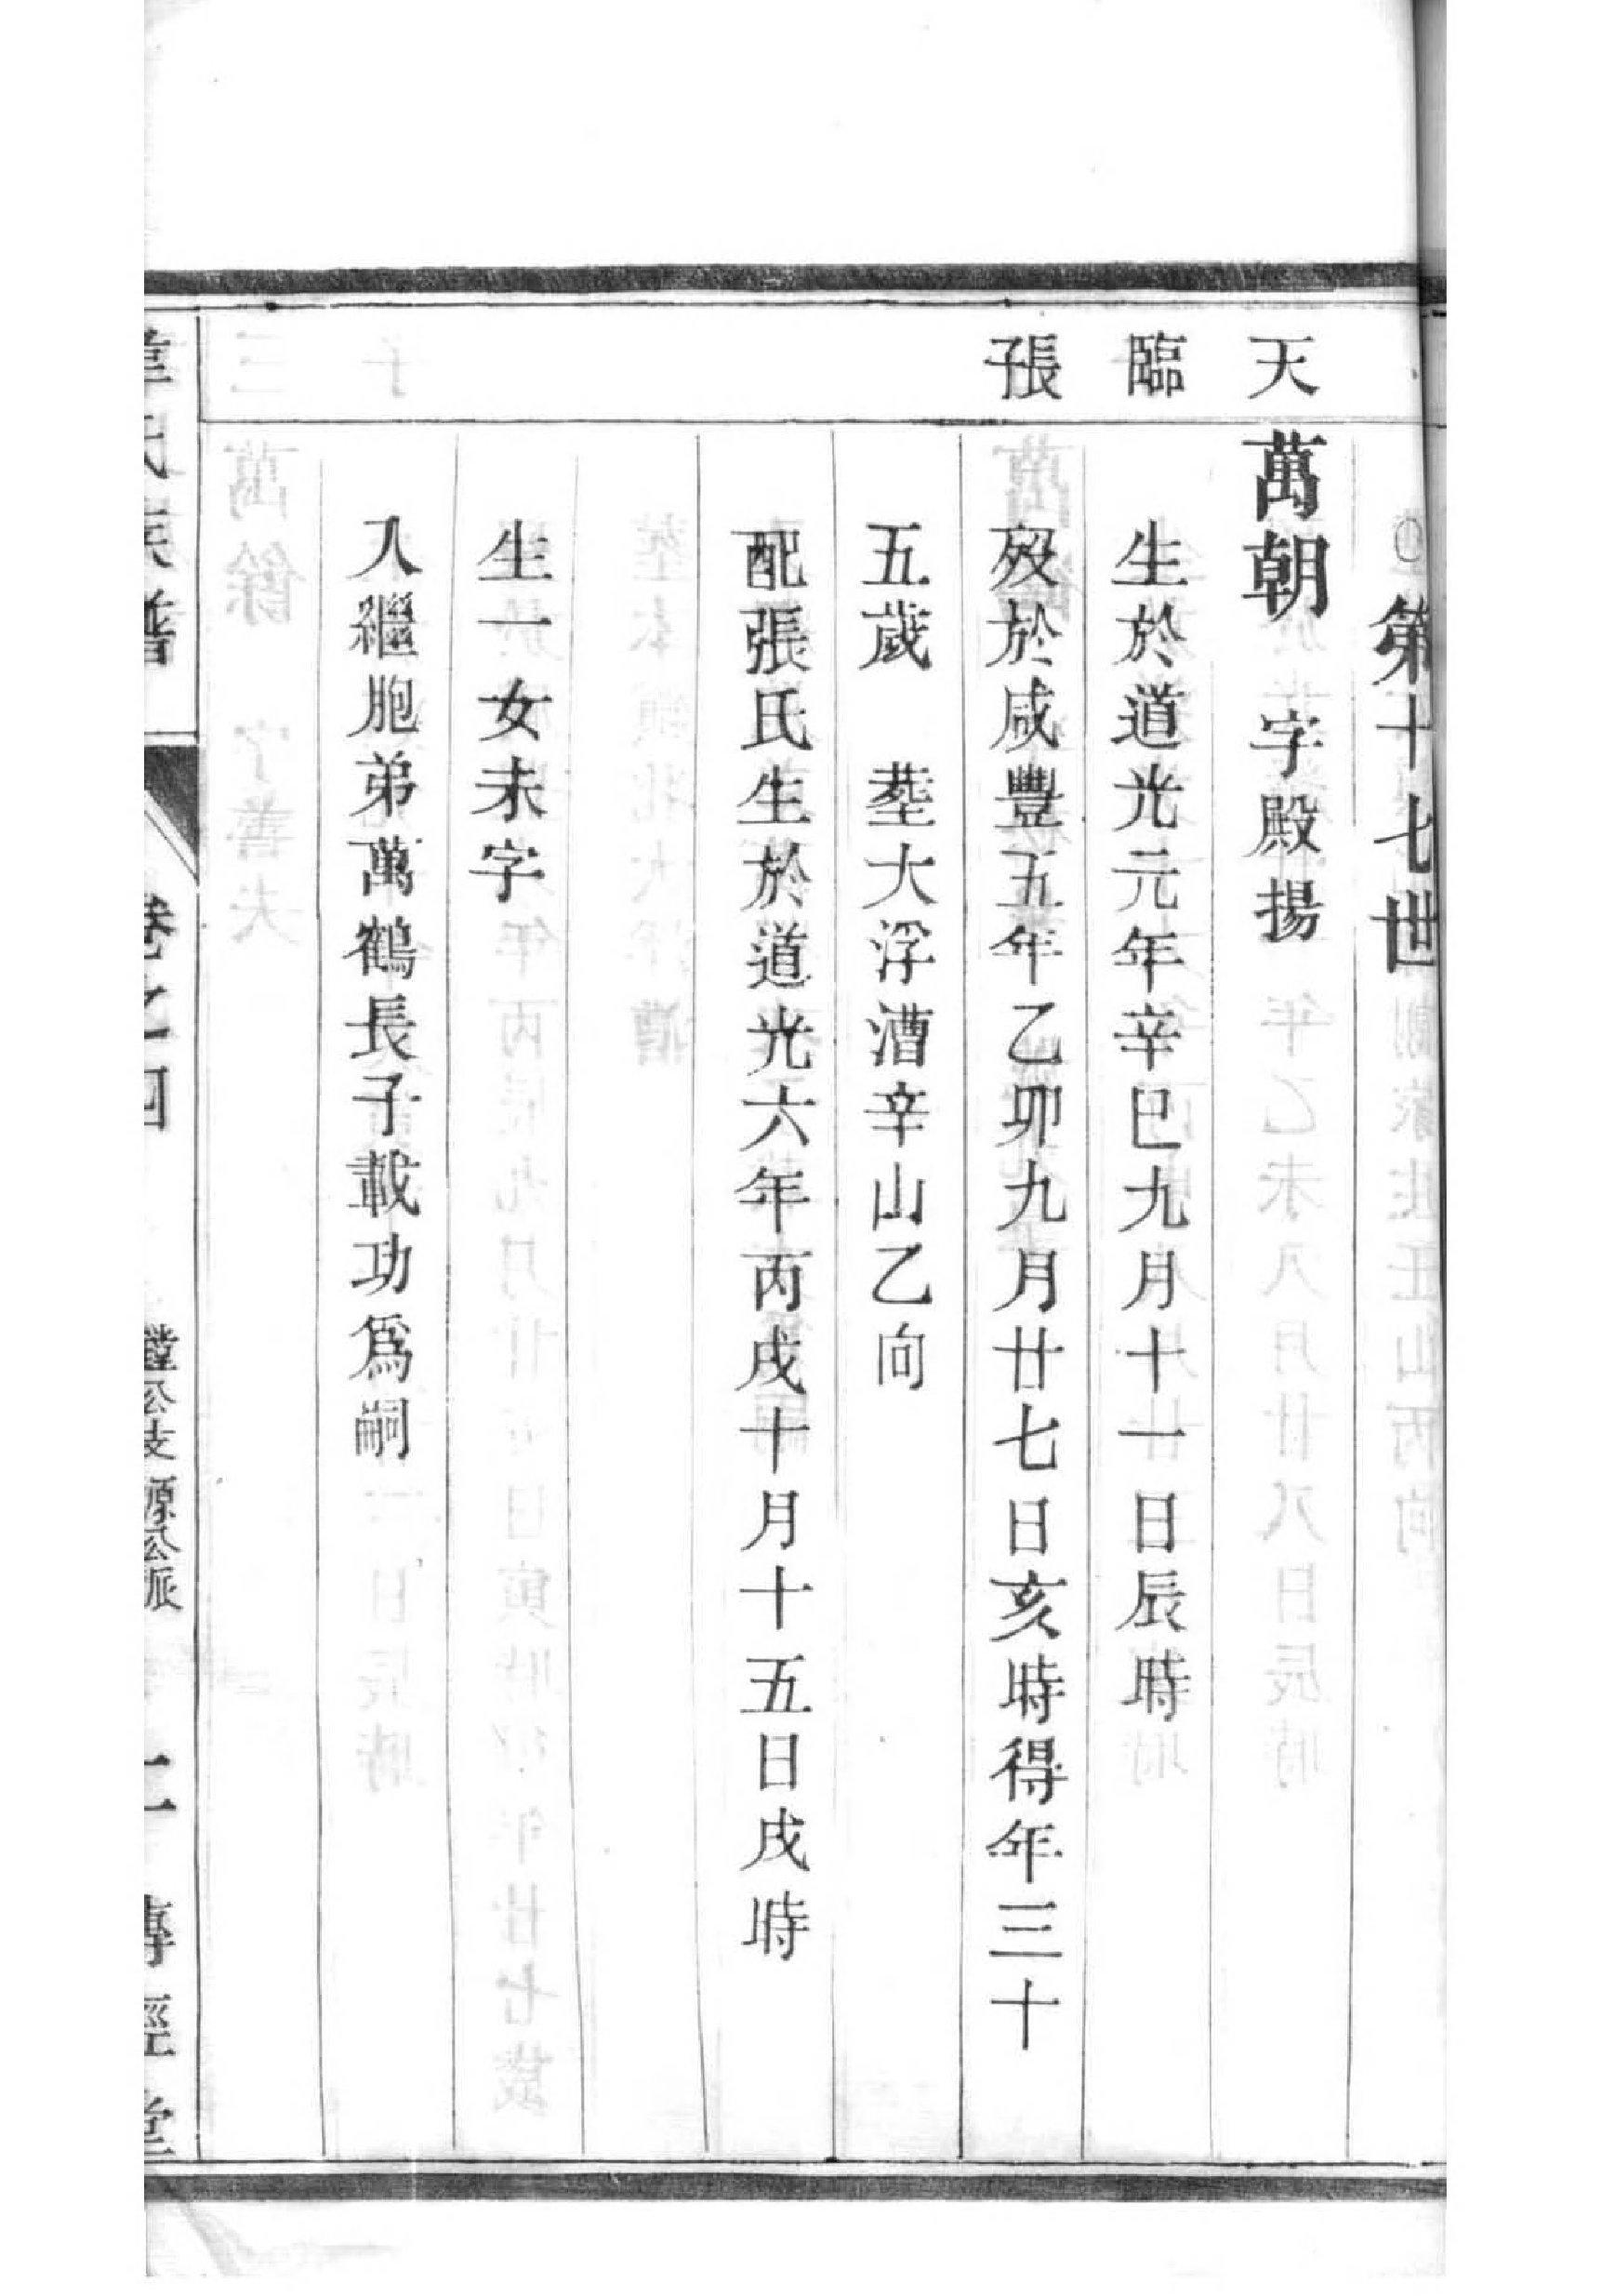 第十七世
天 萬朝 字殿揚
臨 生於道光元年辛巳九月十一日辰時
張子 歿於咸豐五年乙卯九月廿七日亥時得年三十
五歲 塟大浮漕辛山乙向
配張氏生於道光六年丙戌十月十五日戌時
生一女未字
入繼胞弟萬鶴長子載功爲嗣
氏族譜 卷之四 公支源公派 傳經堂